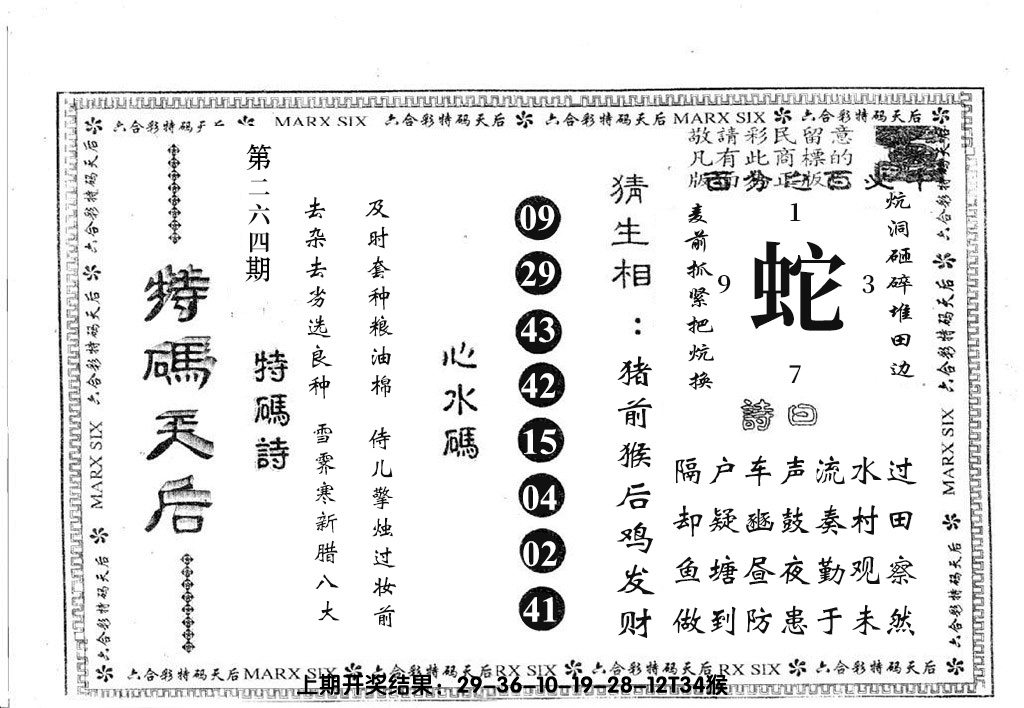 六合彩特码天后 MARX SIX 六合彩特码天后 六合彩特码天后 MARX SIX 六合彩特码天后
敬請彩民留意
凡有此商標的
版面為正版
第二六四期
特碼天后
特碼詩
及时套种粮油棉 侍儿擎烛过妆前
去杂去劣选良种 雪霁寒新腊八大
心水碼
09
29
43
42
15
04
02
41
猜生相：猪前猴后鸡发财
炕洞砸碎堆田边
麦前抓紧把炕换
1
9
蛇
3
7
詩曰
隔户车声流水过
却疑豳鼓奏村田
鱼塘昼夜勤观察
做到防患于未然
六合彩特码天后 MARX SIX 六合彩特码天后
六合彩特码天后 MARX SIX 六合彩特码天后
六合彩特码天后MARX SIX 六合彩特码天后RX SIX 六合彩特码天后RX SIX 六合彩特码天后
上期开奖结果：29-36-10-19-28-12T34猴